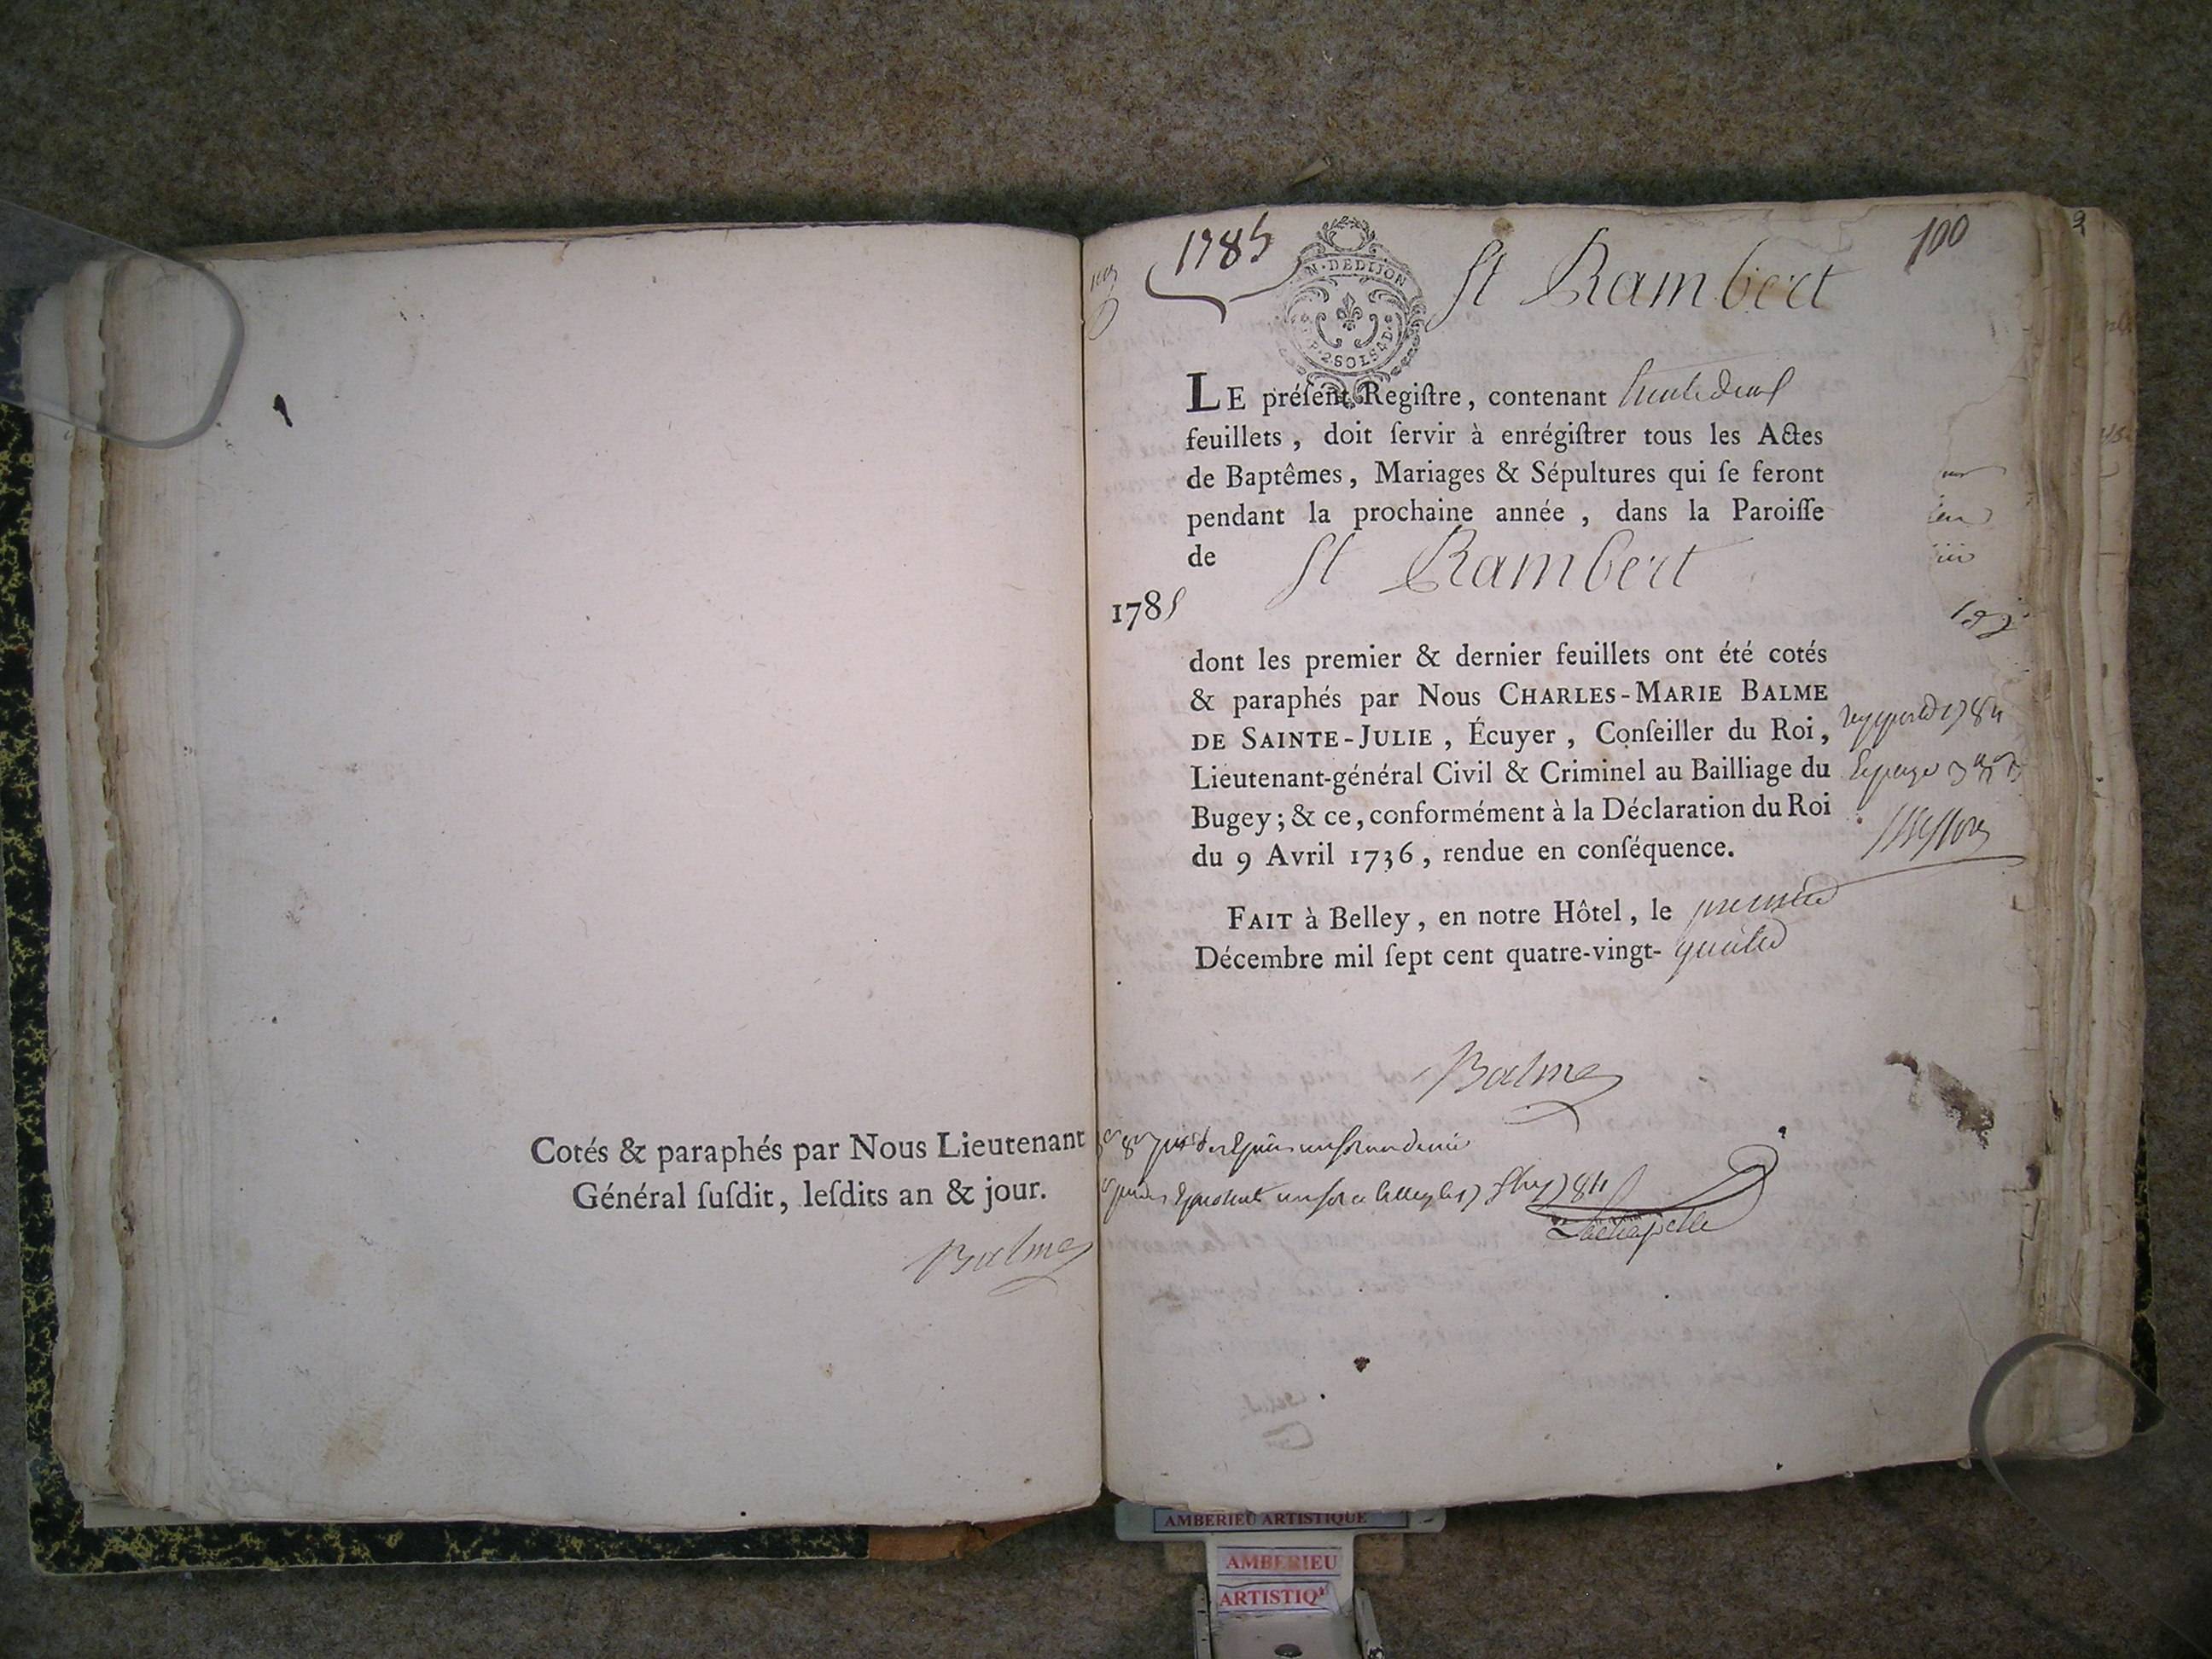 Cotés & paraphés par Nous Lieutenant
Général ſuſdit, leſdits an & jour.
Balme
1785
N·DEDIJON
P·2SOLS4D
St Rambert
100
LE préſent Regiſtre, contenant trente deux
feuillets, doit ſervir à enrégiſtrer tous les Actes
de Baptêmes, Mariages & Sépultures qui ſe feront
pendant la prochaine année, dans la Paroiſſe
de St Rambert
1785
dont les premier & dernier feuillets ont été cotés
& paraphés par Nous CHARLES-MARIE BALME
DE SAINTE-JULIE, Écuyer, Conſeiller du Roi,
Lieutenant-général Civil & Criminel au Bailliage du
Bugey; & ce, conformément à la Déclaration du Roi
du 9 Avril 1736, rendue en conſéquence.
FAIT à Belley, en notre Hôtel, le premier
Décembre mil ſept cent quatre-vingt- quatre
Balme
Lachapelle
AMBERIEU ARTISTIQUE
AMBERIEU
ARTISTIQ